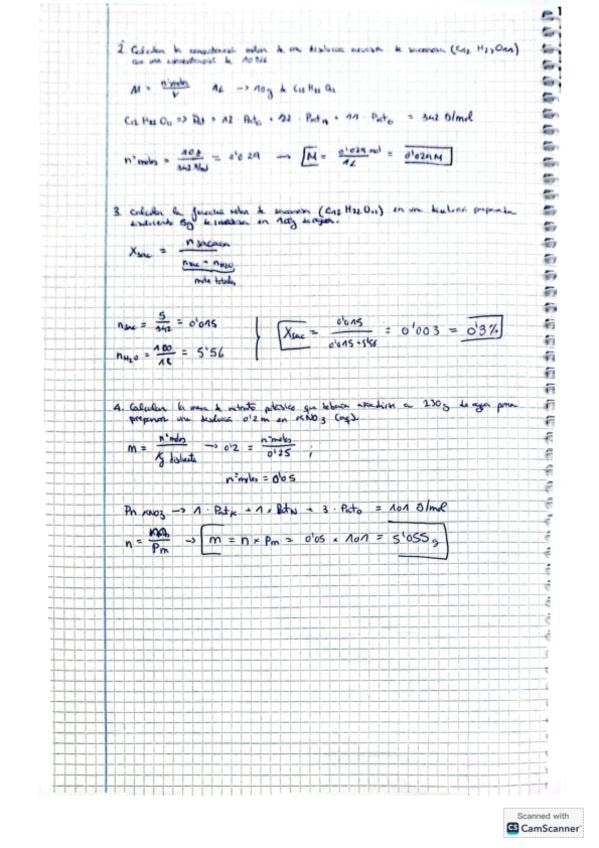 1
2. Calcular la concentración molar de una disolución acuosa de sacarosa (C12 H22 O11)
con una concentración de 10 g/L
M = nº moles / V 1L -> 10g de C12 H22 O11
C12 H22 O11 => Pm = 12 · Pat C + 22 · Pat H + 11 · Pat O = 342 g/mol
nº moles = 10 g / 342 g/mol = 0'029 -> M = 0'029 mol / 1L = 0'029 M
3. Calcular la fracción molar de sacarosa (C12 H22 O11) en una disolución preparada
disolviendo 5g de sacarosa en 100g de agua.
Xsac = n sacarosa / nsac + nH2O
moles totales
nsac = 5 / 342 = 0'015
nH2O = 100 / 18 = 5'56
Xsac = 0'015 / 0'015 + 5'56 = 0'003 = 0'3%
4. Calcular la masa de nitrato potásico que debería añadirse a 250g de agua para
preparar una disolución 0'2 m en KNO3 (aq).
m = nº moles / Kg disolvente -> 0'2 = nº moles / 0'25 ;
nº moles = 0'05
Pm KNO3 -> 1 · Pat K + 1 × Pat N + 3 · Pat O = 101 g/mol
n = m / Pm -> m = n × Pm = 0'05 × 101 = 5'055 g
Scanned with
CS CamScanner